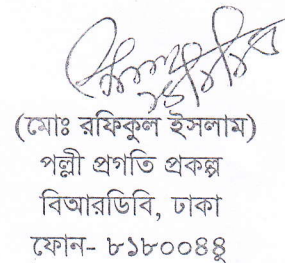 (মোঃ রফিকুল ইসলাম)
পল্লী প্রগতি প্রকল্প
বিআরডিবি, ঢাকা
ফোন- ৮১৮০০৪৪